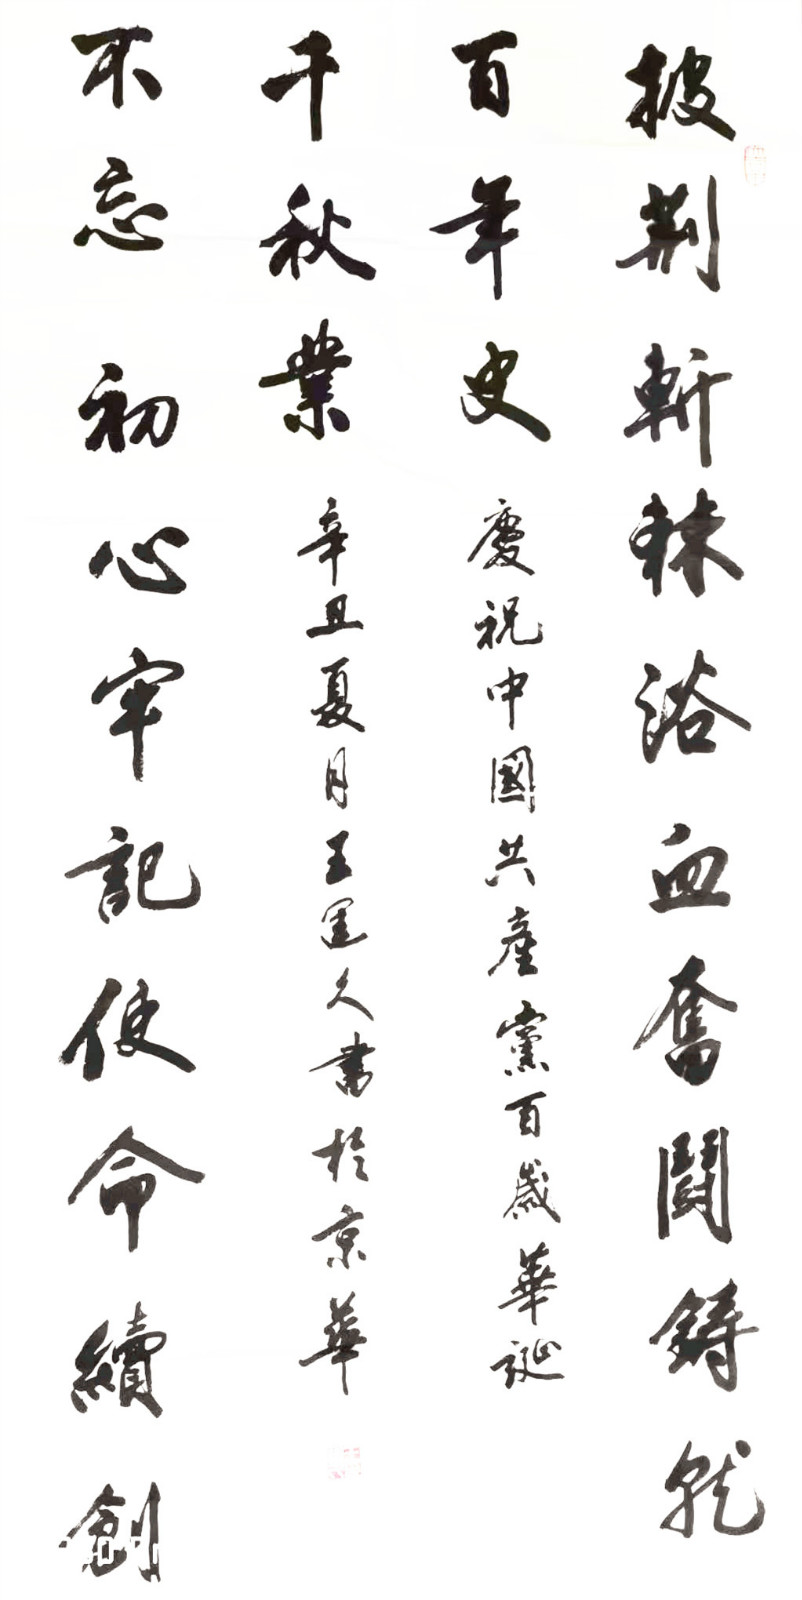 披荆斬棘浴血奮鬪鑄就
百年史 慶祝中國共產黨百歲華誕
不忘初心牢記使命續創
千秋業 辛丑夏月王運久書於京華